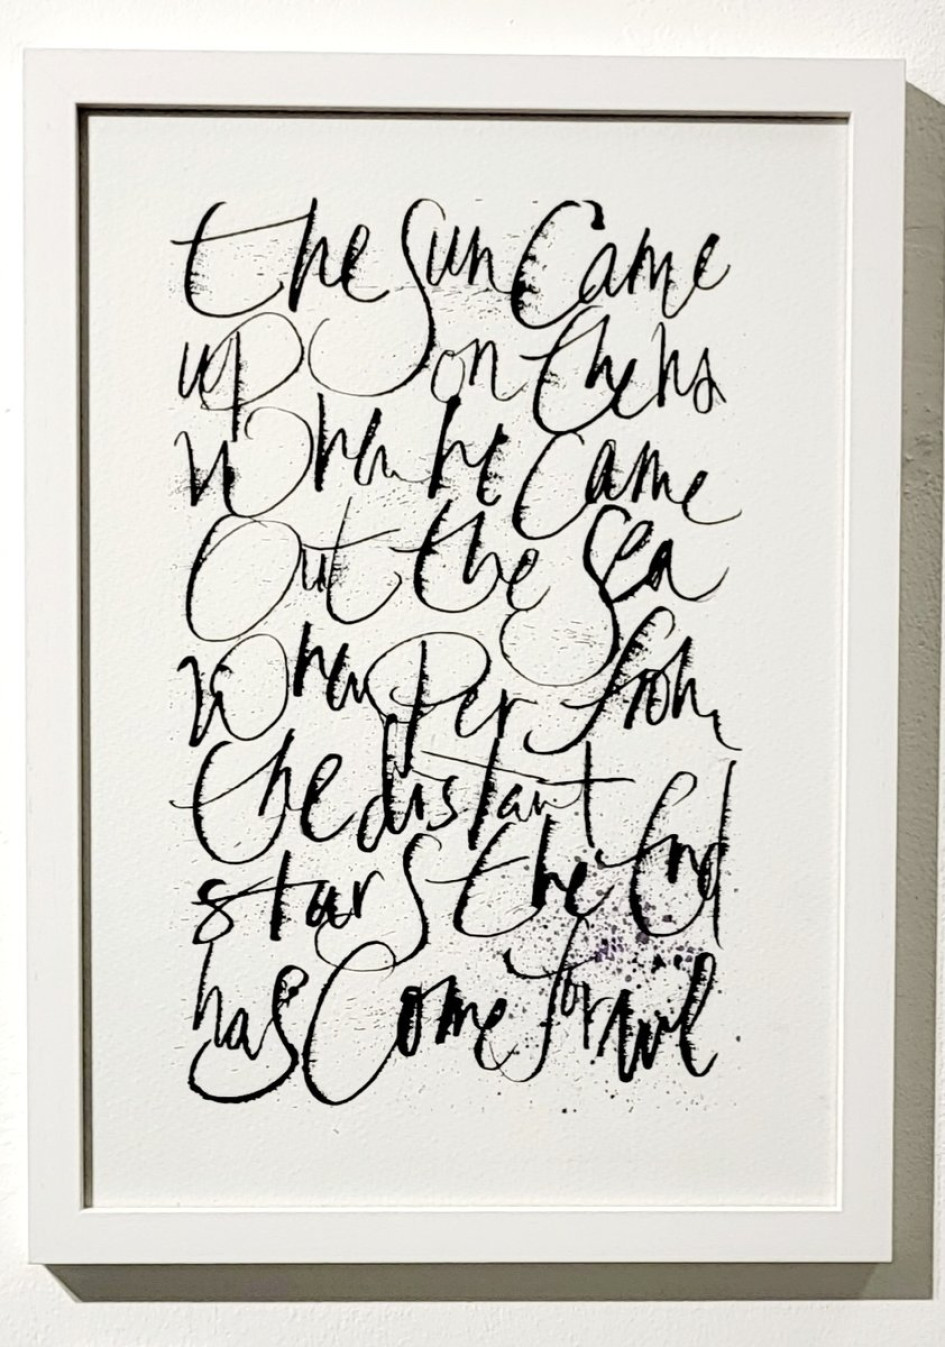 the Sun Came
up on the his
When he Came
Out the Sea
Whisper from
the distant
stars the End
has Come for